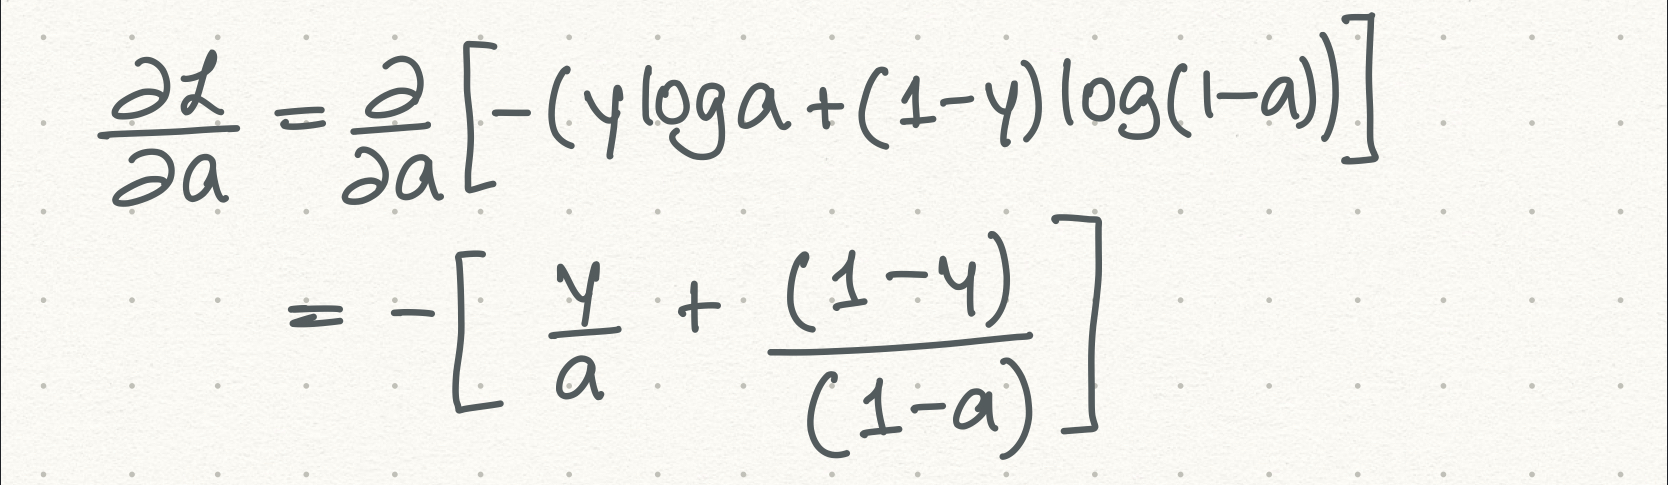 ∂ℒ/∂a = ∂/∂a [-(y log a + (1-y) log(1-a))]
= -[y/a + (1-y)/(1-a)]